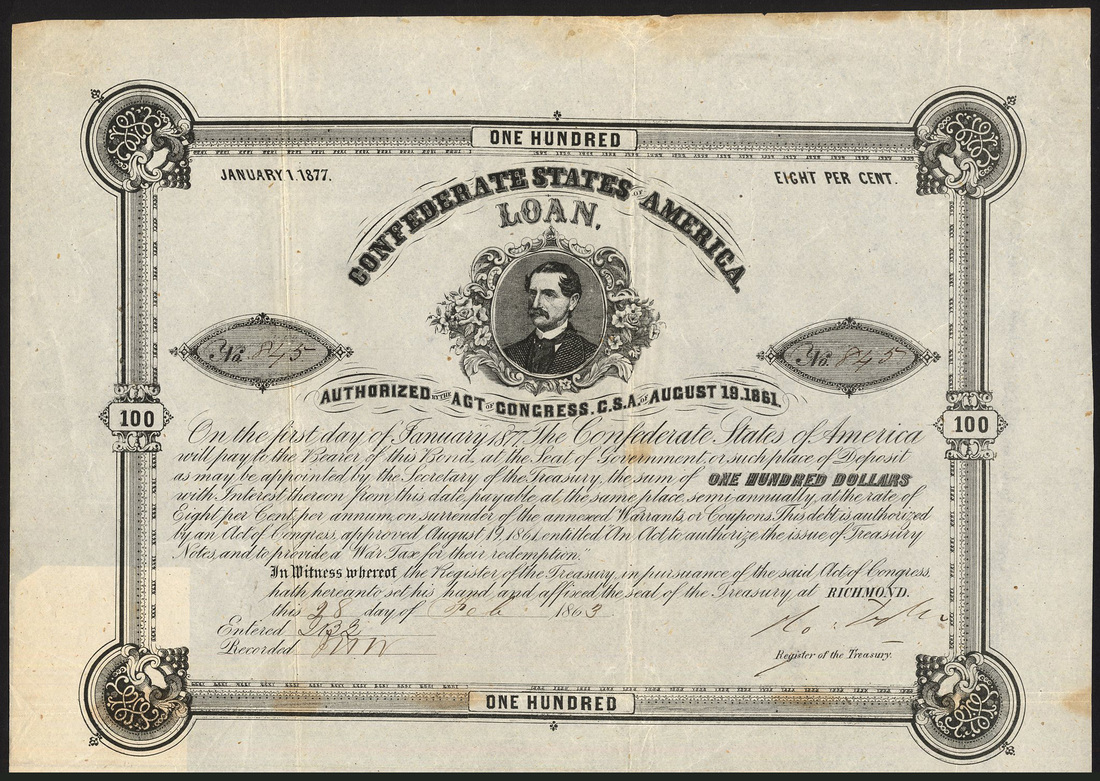 ONE HUNDRED
JANUARY 1. 1877.
EIGHT PER CENT.
CONFEDERATE STATES OF AMERICA,
LOAN,
No. 845
No. 845
AUTHORIZED BY THE ACT OF CONGRESS, C.S.A. OF AUGUST 19.1861.
100
100
On the first day of January 1877, The Confederate States of America
will pay to the Bearer of this Bond, at the Seat of Government, or such place of Deposit
as may be appointed by the Secretary of the Treasury, the sum of ONE HUNDRED DOLLARS
with Interest thereon from this date, payable at the same place semi-annually, at the rate of
Eight per Cent. per annum, on surrender of the annexed Warrants, or Coupons. This debt is authorized
by an Act of Congress, approved August 19, 1861, entitled "An Act to authorize the issue of Treasury
Notes, and to provide a War Tax for their redemption."
In Witness whereof the Register of the Treasury, in pursuance of the said Act of Congress,
hath hereunto set his hand, and affixed the seal of the Treasury, at RICHMOND.
this 28 day of Feb 1863
Entered
Recorded
Register of the Treasury.
ONE HUNDRED